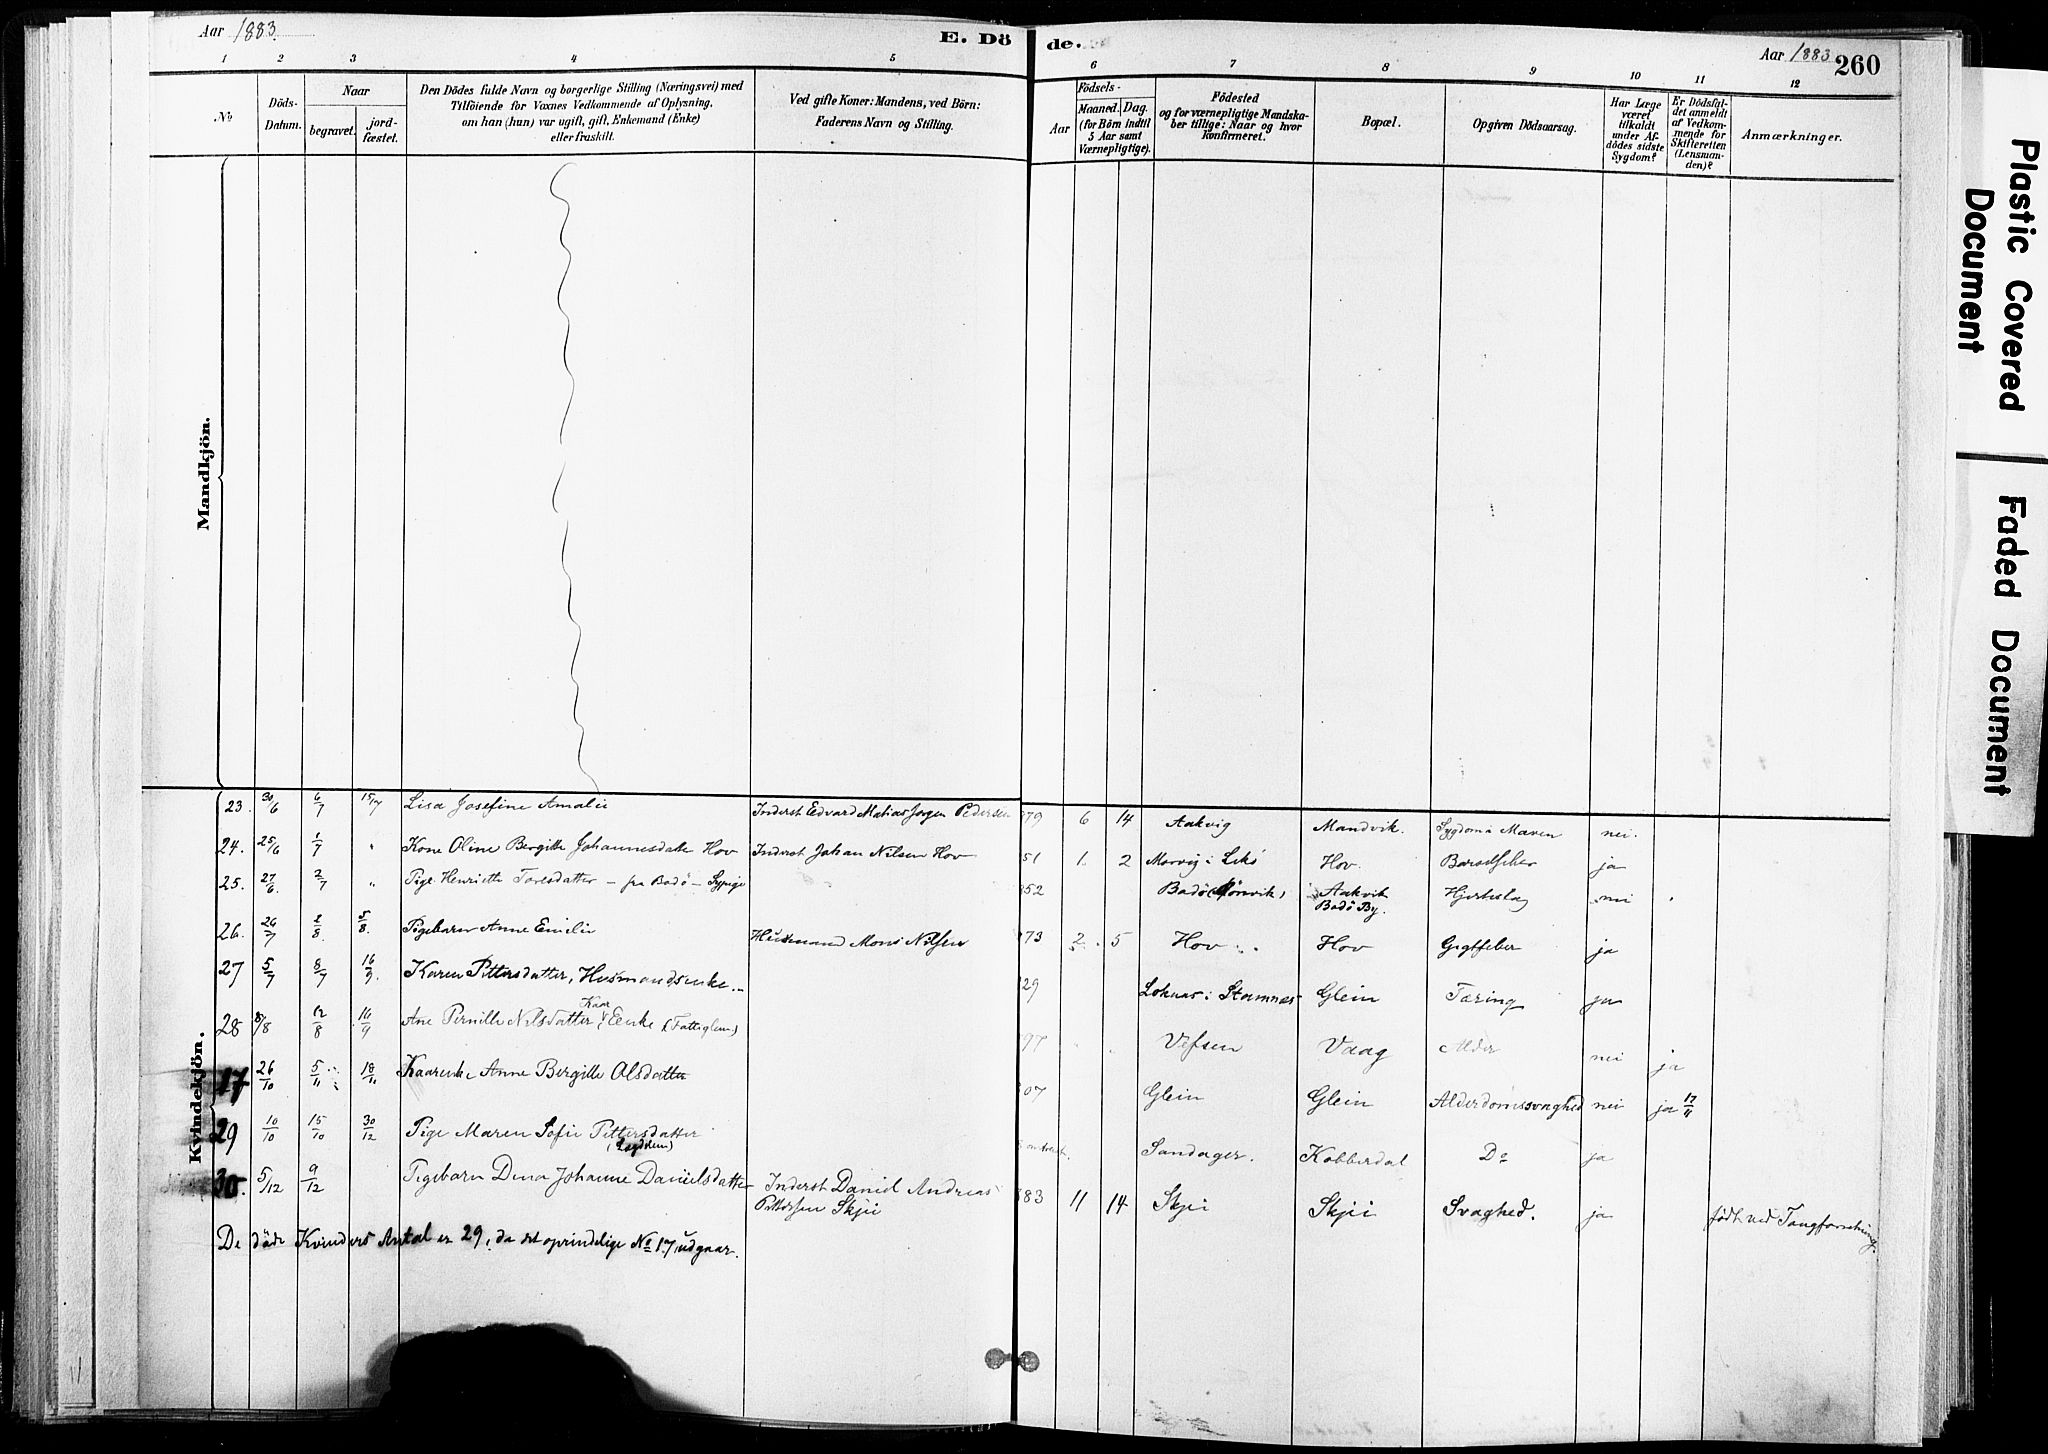 Aar 1883.
E. Dö
de.
Aar 1883
260
1 2 3 4 5 6 7 8 9 10 11 12
No
Döds-
Datum.
Naar
begravet.
jord-
fæstet.
Den Dödes fulde Navn og borgerlige Stilling (Næringsvei) med
Tilföiende for Voxnes Vedkommende af Oplysning,
om han (hun) var ugift, gift, Enkemand (Enke)
eller fraskilt.
Ved gifte Koner: Mandens, ved Börn:
Faderens Navn og Stilling.
Födsels-
Aar
Maaned. Dag.
(for Börn indtil
5 Aar samt
Værnepligtige).
Födested
og for værnepligtige Mandska-
ber tillige: Naar og hvor
konfirmeret.
Bopæl.
Opgiven Dödsaarsag.
Har Læge
været
tilkaldt
under Af-
dödes sidste
Sygdom?
Er Dödsfal-
det anmeldt
af Vedkom-
mende for
Skifteretten
(Lensman-
den)?
Anmærkninger.
Mandkjön.
Kvindekjön.
23. 30/6 6/7 15/7 Lisa Josefine Amalie Inderst Edvard Matias Jørgen Pedersen 79 6 14 Aakvig Mandvik. Sygdom i Maven nei.
24. 25/6 1/7 " Kone Oline Bergitte Johannesdatter Hov Inderst Johan Nilsen Hov 51 1. 2 Hov. Barselfeber ja
25. 27/6 2/7 " Pige Henriette Toresdatter – fra Bodö – Sypige 852 Bodö (Rönvik) Aakvik Hjerteslag nei
Bodö By.
26. 26/7 2/8 5/8. Pigebarn Anne Emilie Husmand Mons Nilsen 73 2. 5 Hov Hov Gigtfeber ja
27 5/7 8/7 16/9. Karen Pettersdatter, Husmandsenke. 29 Glein Tæring ja
28 8/8 12/8 16/9 Ane Pernille Nilsdatter Kaar Enke (Fattiglem) 97 " " Vefsen Vaag Alder nei ja
17 26/10 5/11 18/11 Kaarenke Anne Bergitte Olsdatter 07 Glein Glein Alderdomssvaghed nei ja 17/11
29 10/10 15/10 30/12 Pige Maren Sofie Pettersdatter Sandager. Kobberdal Do ja
(Lægdslem)
30. 5/12 9/12 Pigebarn Dina Johanne Danielsdatter Inderst Daniel Andreas 83 11 14 Skjei Skjei Svaghed. ja født ved Tangforretning.
Pettersen Skjei
De døde Kvinders Antal er 29, da det oprindelige No 17 udgaar.
Plastic Covered
Document
Faded Document